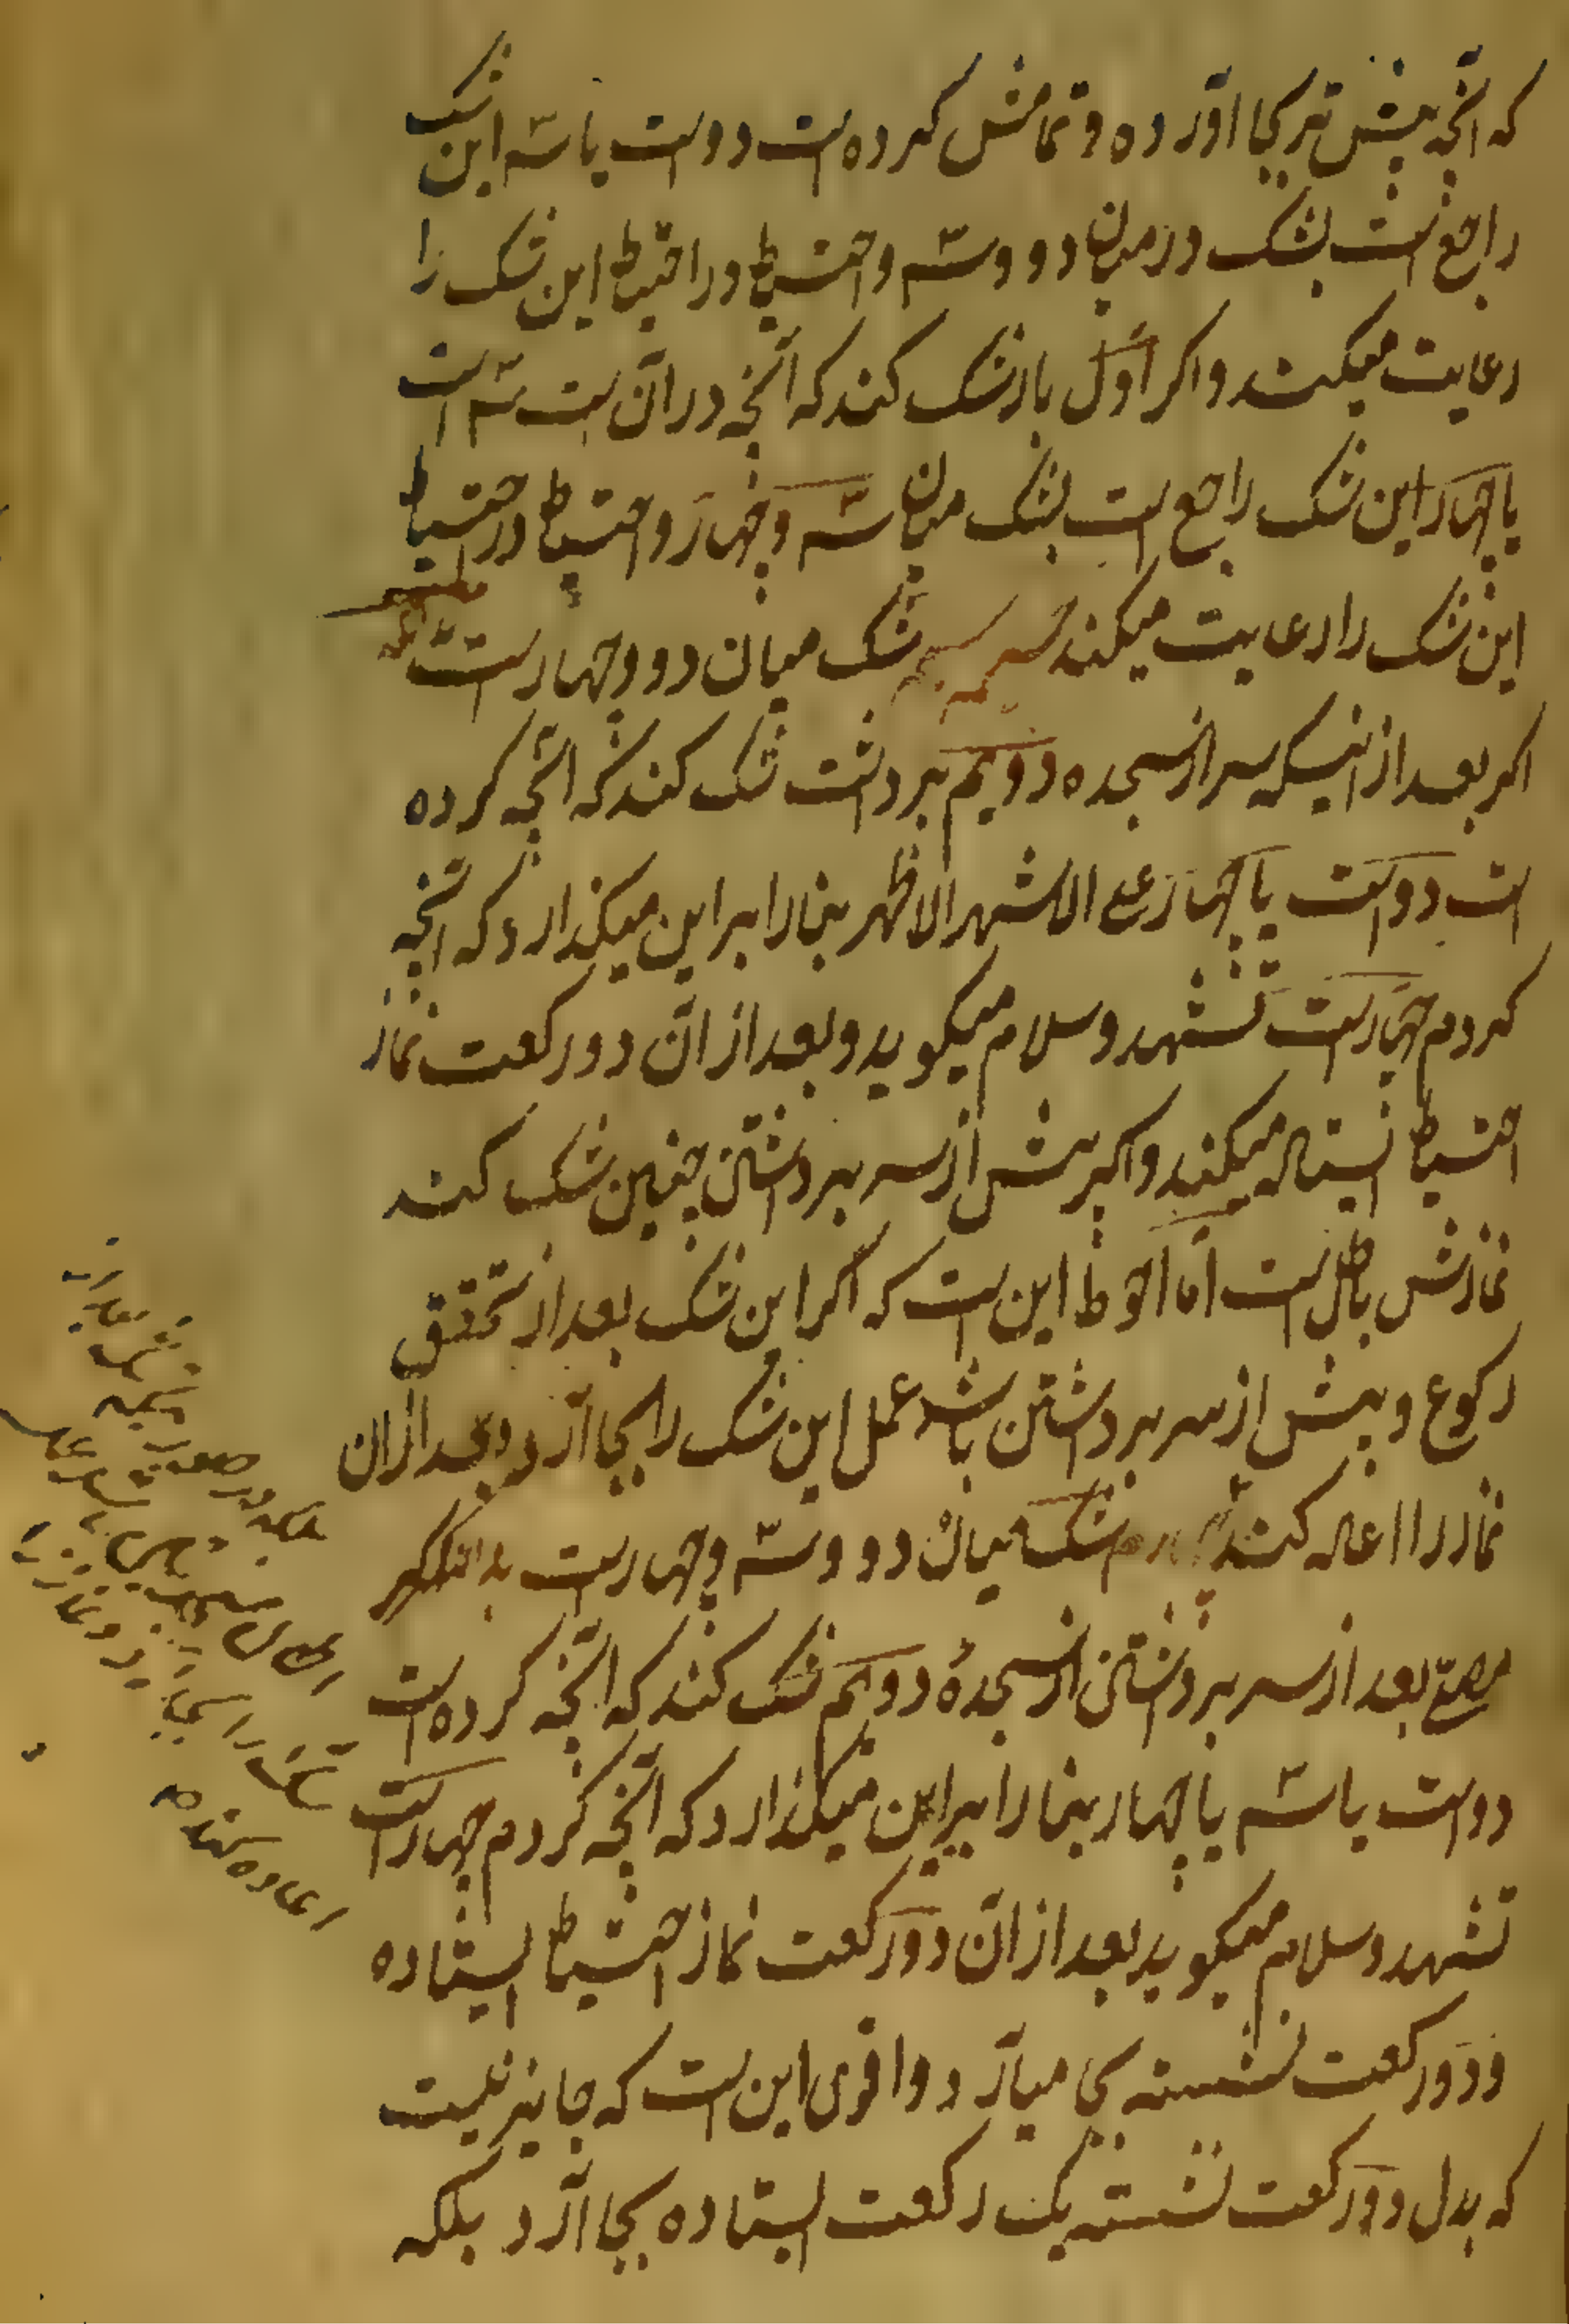 که آنچه پیش تر بجا آورده و تمامش کرده است دو است یا سه این شک
راجع است بشک در میان دو و سه و احتیاط در احتیاط این شک را
رعایت میکند و اگر اول بار شک کند که آنچه در آن است سه است
یا چهار این شک راجع است بشک میان سه و چهار و احتیاط در احتیاط
این شک را رعایت میکند شک میان دو و چهار است
اگر بعد از اینکه سر از سجده دویم برداشت شک کند که آنچه کرده
است دو است یا چهار علی الاشهر الاظهر بنا را بر این میگذارد که آنچه
کردم چهار است تشهد و سلام میگوید و بعد از آن دو رکعت نماز
احتیاط ایستاده میکند و اگر پیش از سر برداشتن چنین شک کند
نمازش باطل است اما احوط این است که اگر این شک بعد از تحقق
رکوع و پیش از سر برداشتن باشد عمل این شک را بجا آرد و بعد از آن
نماز را اعاده کند شک میان دو و سه و چهار است
مصلی بعد از سر برداشتن از سجدهٔ دویم شک کند که آنچه کرده است
دو است یا سه یا چهار بنا را بر این میگذارد که آنچه کردم چهار است
تشهد و سلام میگوید بعد از آن دو رکعت نماز احتیاط ایستاده
و دو رکعت نشسته بجا میآرد و اقوی این است که جایز نیست
که بدل دو رکعت نشسته یک رکعت ایستاده بجا آرد بلکه
اعاده کند